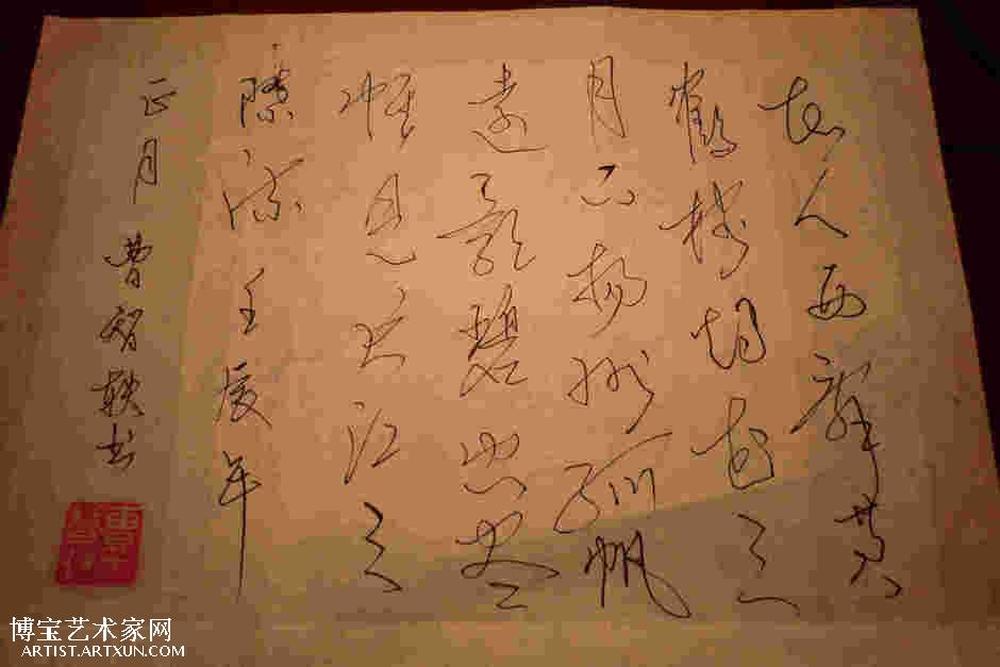 故人西辞黄
鹤楼烟花三
月下扬州孤帆
遠影碧山尽
惟见长江天
際流壬辰年
正月 曹智轶书
博宝艺术家网
ARTIST.ARTXUN.COM